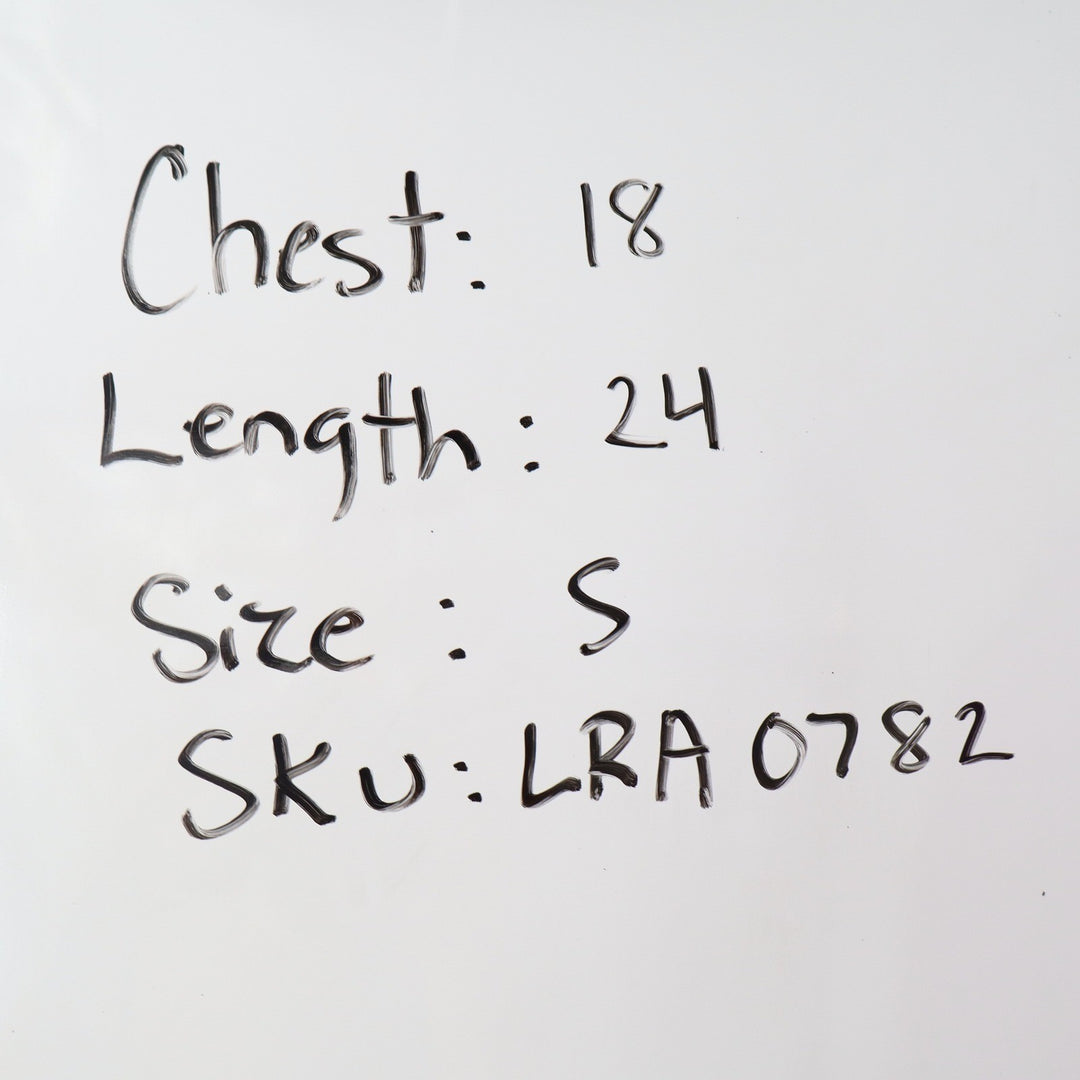 Chest: 18
Length: 24
Size: S
SKU: LRA 0782